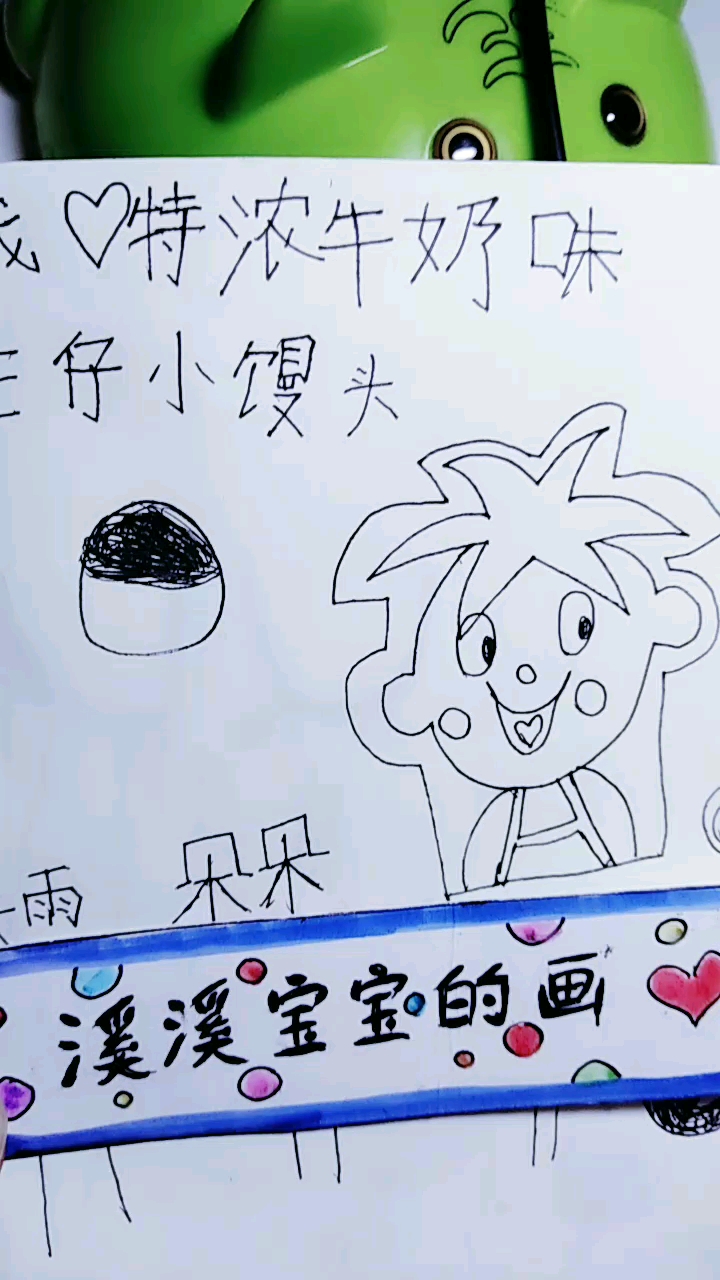 我♡特浓牛奶味
旺仔小馒头
雨 朵朵
溪溪宝宝的画